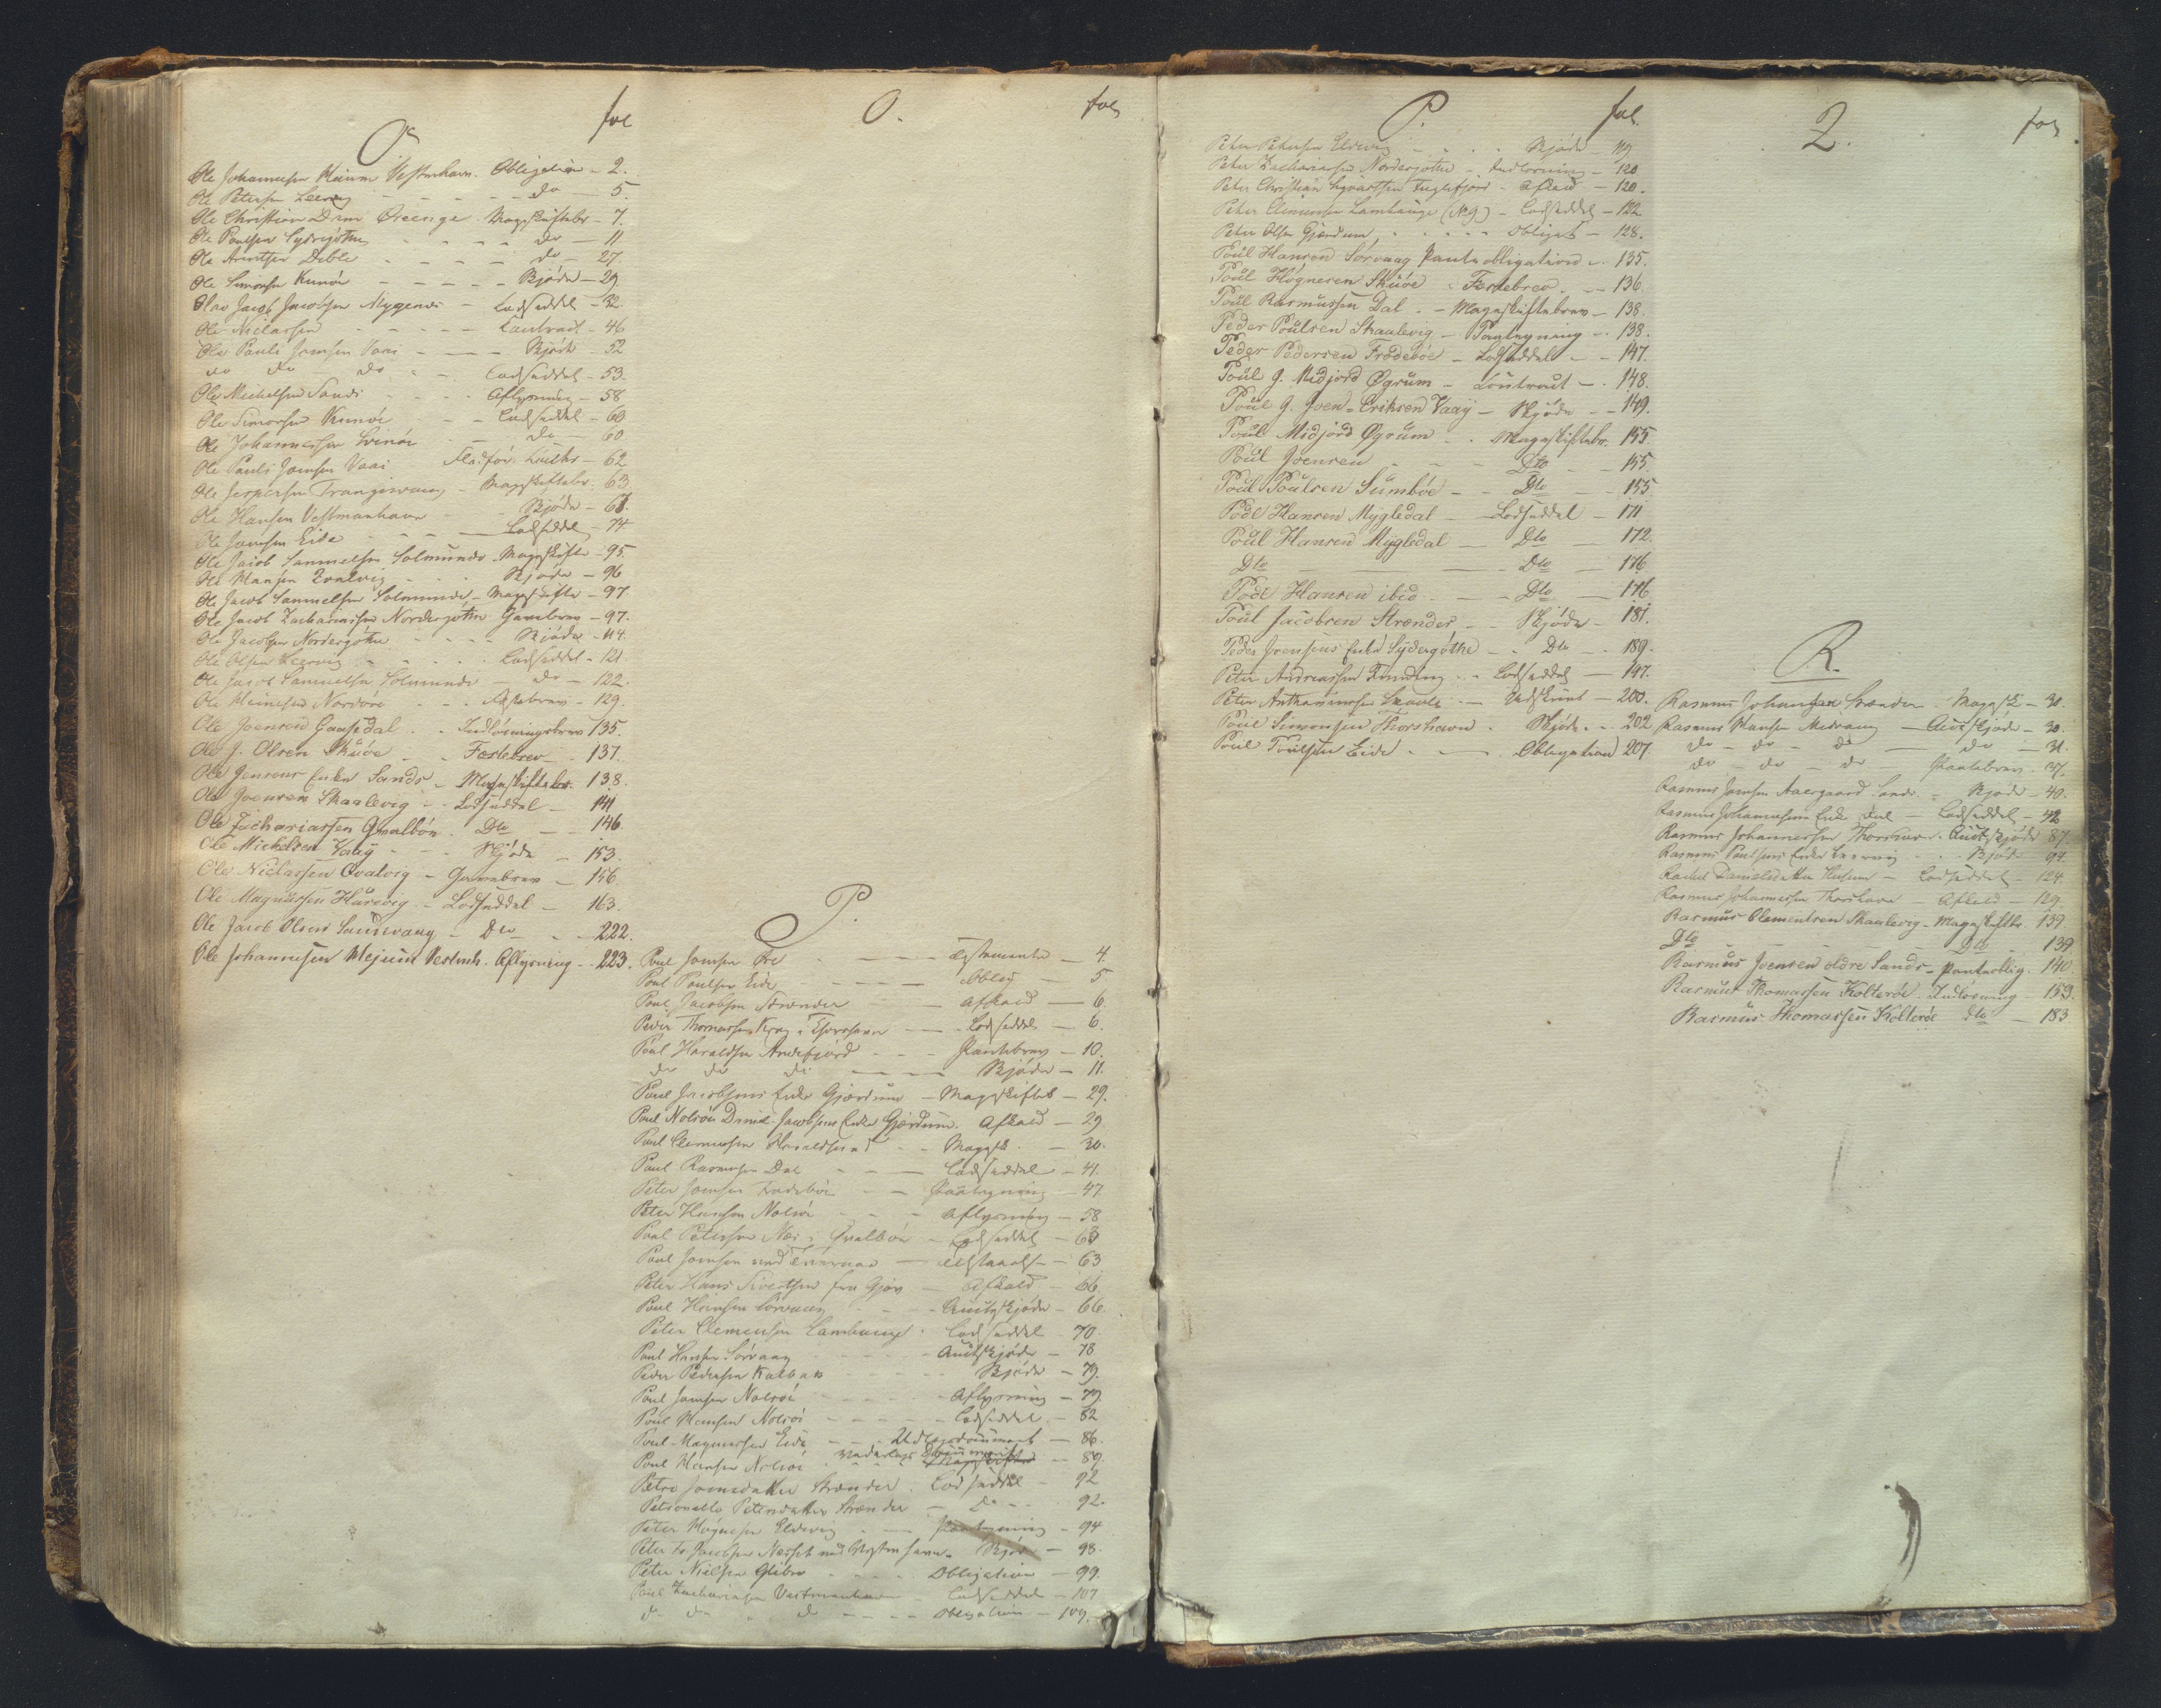 O. fol
Ole Johannesen Heium Vestmhavn. Obligation - 2.
Ole Petersen Leervig - - do - 5.
Ole Christian Dim Øreenge. Mageskiftebr - 7.
Ole Poulsen Sydregöthe - - - do - 11
Ole Arentsen Deble - - - do - 27
Ole Simonsen Kunöe - - - Skjöde - 29
Olav Jacob Jacobsen Myggenes - Lodseddel - 32.
Ole Niclassen - - - Contract - 46
Ole Pauli Joensen Vaai - - Skjöde - 52
do do do - - Lodseddel - 53.
Ole Michelsen Sands - - - Aflysning - 58
Ole Simonsen Kunöe - - Lodseddel - 60
Ole Johannessen Svinöe - do - 60
Ole Pauli Joensen Vaai - 62
Ole Jespersen Trangisvaag - Mageskiftebr. 63
Ole Hansen Vestmanhavn - Skjöde - 67.
Ole Joensen Eide - - - Lodseddel - 74
Ole Jacob Samuelsen Solmunde Mageskifte - 95.
Ole Hansen Qvalvig - - Skjöde - 96
Ole Jacob Samuelsen Solmunde - Mageskifte - 97
Ole Jacob Zachariassen Nordregöthe Gavebrev - 97.
Ole Jacobsen Nordregöthe - - - Skjöde - 114.
Ole Olsen Leervig - - - Lodseddel - 121
Ole Jacob Samuelsen Solmunde - do - 122.
Ole Heinesen Nordöre - - Festebrev - 129.
Ole Joensen Gaasedal - - Indlösningsbrev 135.
Ole J. Olsen Skuöe - - Festebrev - 137.
Ole Jensens Enke Sands - Mageskiftebr. 138.
Ole Joensen Skaalevig - - Lodseddel - 141
Ole Zachariassen Qvalböe. Dto - 146.
Ole Michelsen Vaag - - Skjöde - 153.
Ole Niclassen Qvalvig - Gavebrev - 156.
Ole Magnussen Husevig - Lodseddel - 163.
Ole Jacob Olsen Sandevaag - Dto - - 222.
Ole Johannesen Mejeum Vestmh. Aflysning - 223.
O. fol
P.
Poul Joensen Öre - - - Testamente - 4.
Poul Poulsen Eide - - - Oblig - 5
Poul Jacobsen Strender - - Afkald - 6
Peder Thomassen Krag i Thorshavn - - Lodseddel - 6.
Poul Haraldsen Andefjord - - - Pantebrev - 10.
do do do - - - Skjöde - 11.
Poul Jacobsens Enke Gjærdum - Mageskiftet - 29.
Poul Nolsöe Daniel Jacobsens Enke Gjerdum. Afkald - 29
Poul Clemensen Haraldsund - - Magesk. - 30.
Poul Rasmussen Dal - - - Lodseddel - 41.
Peter Joensen Frodeböe - - Paategning - 47
Peter Hansen Nolsöe - - - Aflysning - 58
Poul Petersen Næs i Qvalböe - Lodseddel - 63
Poul Joensen - 63
Peter Hans Sivertsen fra Gjov - Afkald - 66
Poul Heinsen Sörvaag - - - Auctskjöde - 66.
Peter Clemensen Lamhauge. Lodseddel - 70
Poul Hansen Sörvaag - - - Auctskjöde - 78
Peder Pedersen Kalbak - - - Skjöde - 79.
Poul Joensen Nolsöe - - - Aflysning - 79.
Poul Hansen Nolsöe - - - Lodseddel - 82
Poul Magnussen Eide - - Udlægsdocument - 86.
Poul Hansen Nolsöe - Mageskifte - 89.
Petra Joensdatter Strender. Lodseddel - 92
Petronelle Petersdatter Strender - do - 92.
Peter Höjnesen Eldevig - Paategning - 94
Peter Fr Jacobsen Næsset ved Vestmhavn - Skjöde - 98.
Peter Nielsen Glibre - - - Obligation - 99.
Poul Zachariasen Vestmanhavn - Lodseddel - 107
do do do - - - Obligation - 109.
P. fol.
Peter Petersen Eldevig - - - Skjöde - 119
Peter Zachariassen Nordregöthe - Indlösning - 120
Peter Christian Sivartsen Fuglefjord - Afkald - 120.
Peter Clemensen Lamhauge (No 9) - Lodseddel - 122
Peter Olsen Gjærdum, - - - Obligat - 128.
Poul Hansen Sörvaag Panteobligation - 135.
Poul Högnesen Skuöe - Festebrev. - 136.
Poul Rasmussen Dal. - Mageskiftebrev - 138.
Peder Poulsen Skaalevig - Paategning - 138.
Peder Pedersen Frodeböe - Lodseddel - 147.
Poul J. Midjord Øgrum - Contract - 148.
Poul J. Joen-Eriksen Vaag - Skjöde - 149.
Poul Midjord Øgrum - - Mageskiftebr. 155.
Poul Joensen - - Dto - - 155.
Poul Poulsen Sumböe - - Dto - 155
Podl Hansen Mygledal - Lodseddel - 171
Poul Hansen Mygledal - Dto - 172.
Dto - - Dto - 176
Podl Hansen ibid - - Dto - 176
Poul Jacobsen Strender - - Skjöde - 181.
Peder Joensens Enke Sydregöthe - - Dto - 189.
Peter Andreassen Funding - - Lodseddel - 197.
Peter Anthoniussen - Udskrivt - 200.
Poul Simonsen Thorshavn - Skjöde - - 202
Poul Poulsen Eide - - Obligation 207
Q. fol
R.
Rasmus Johansen Strender - Magesk - 30.
Rasmus Hansen Midvaag - Auctskjöde - 30.
do - do - do - do - 31.
do - do - do - Pantebrev - 37.
Rasmus Joensen Aaergaard Sand - Skjöde - 40.
Rasmus Johannesens Enke Dal - Lodseddel - 42
Rasmus Johannessen Thorshavn. Auctskjöde 87
Rasmus Poulsens Enke Leervig - - Skjöde 94.
Rachel Danielsdatter Husum - Lodseddel - 124.
Rasmus Johannessen Thorshavn - Afkald - 129
Rasmus Clementsen Skaalevig - Mageskiftbr 139.
Dto - - Dto - 139
Rasmus Joensen ældre Sands - Panteoblig. 140
Rasmus Thomassen Kolteröe. Indlösning - 159.
Rasmus Thomassen Kolteröe Dto - 183